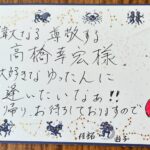 偉大なる 尊敬する
高橋幸宏様.
大好きな ゆったんに
逢いたいなぁ!!
帰り、お待ちしておりますので